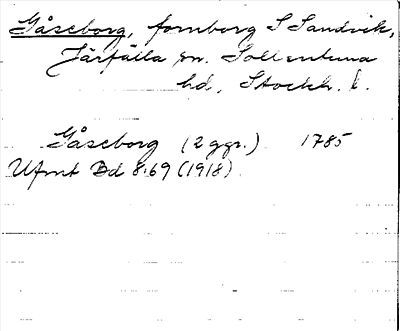 Gåseborg, fornborg S Sandvik,
Järfälla sn. Sollentuna
hd, Stockh. l.
Gåseborg (2 ggr.) 1785
Ufmt Bd 8:69 (1918)